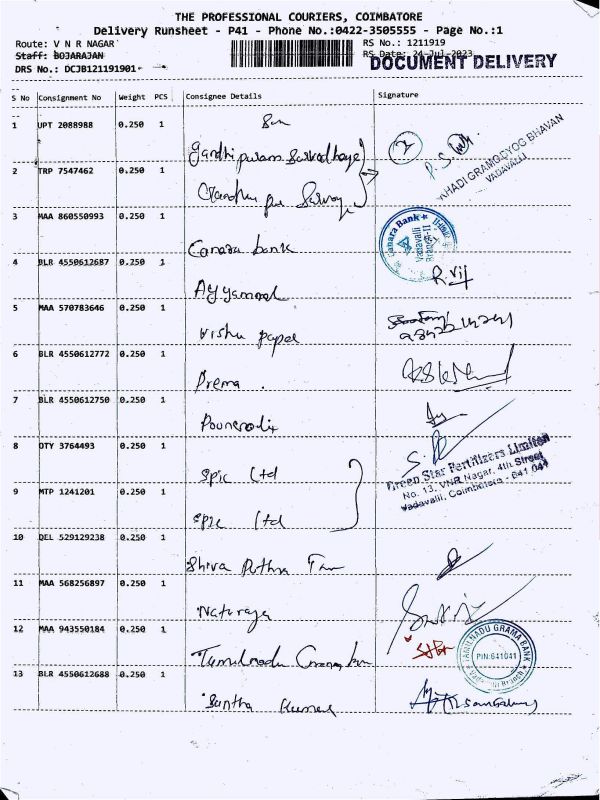 THE PROFESSIONAL COURIERS, COIMBATORE
Delivery Runsheet - P41 - Phone No.:0422-3505555 - Page No.:1
Route: V N R NAGAR
RS No.: 1211919
Staff: BOJARAJAN
RS Date: 24-Jul-2023
DOCUMENT DELIVERY
DRS No.: DCJB121191901
S No Consignment No Weight PCS Consignee Details Signature
1 UPT 2088988 0.250 1
KHADI GRAMODYOG BHAVAN
VADAVALLI
2 TRP 7547462 0.250 1
3 MAA 860550993 0.250 1
Canara bank
Canara Bank
Vadavalli
Branch-II
4 BLR 4550612687 0.250 1
Ayyammal
5 MAA 570783646 0.250 1
Vishu paper
6 BLR 4550612772 0.250 1
Prema
7 BLR 4550612750 0.250 1
8 OTY 3764493 0.250 1
Spic Ltd
Green Star Fertilizers Limited
No. 13, VNR Nagar, 4th Street
Vadavalli, Coimbatore - 641 041
9 MTP 1241201 0.250 1
Spic Ltd
10 DEL 529129238 0.250 1
Shiva
11 MAA 568256897 0.250 1
Nataraja
12 MAA 943550184 0.250 1
Tamilnadu
TAMILNADU GRAMA BANK
PIN:641041
Branch
13 BLR 4550612688 0.250 1
Santha Kumar